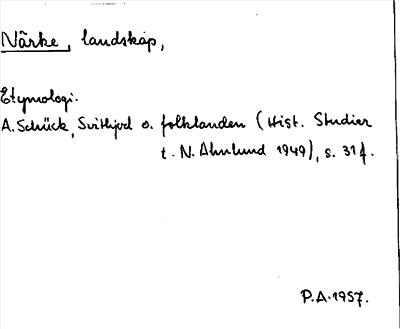 Närke, landskap,
Etymologi.
A. Schück, Svithjod o. folklanden (Hist. Studier
t. N. Ahnlund 1949), s. 31 f.
P.A. 1957.